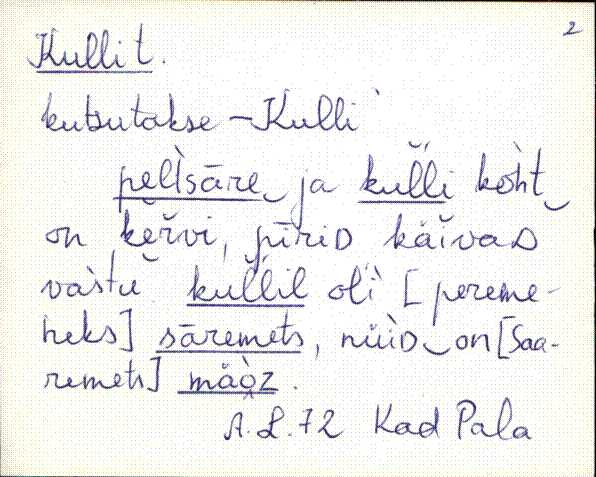 2
Kullit.
kutsutakse – Kulli
pel̀tsāre‿ja kul̆li kòht‿
on kĕrvi, pīriD käĭvaD
vàstu kul̆lil oli [pereme-
heks] sāremets, nüiD‿on [Saa-
remets] mäò̭z.
A.L.72 Kad Pala